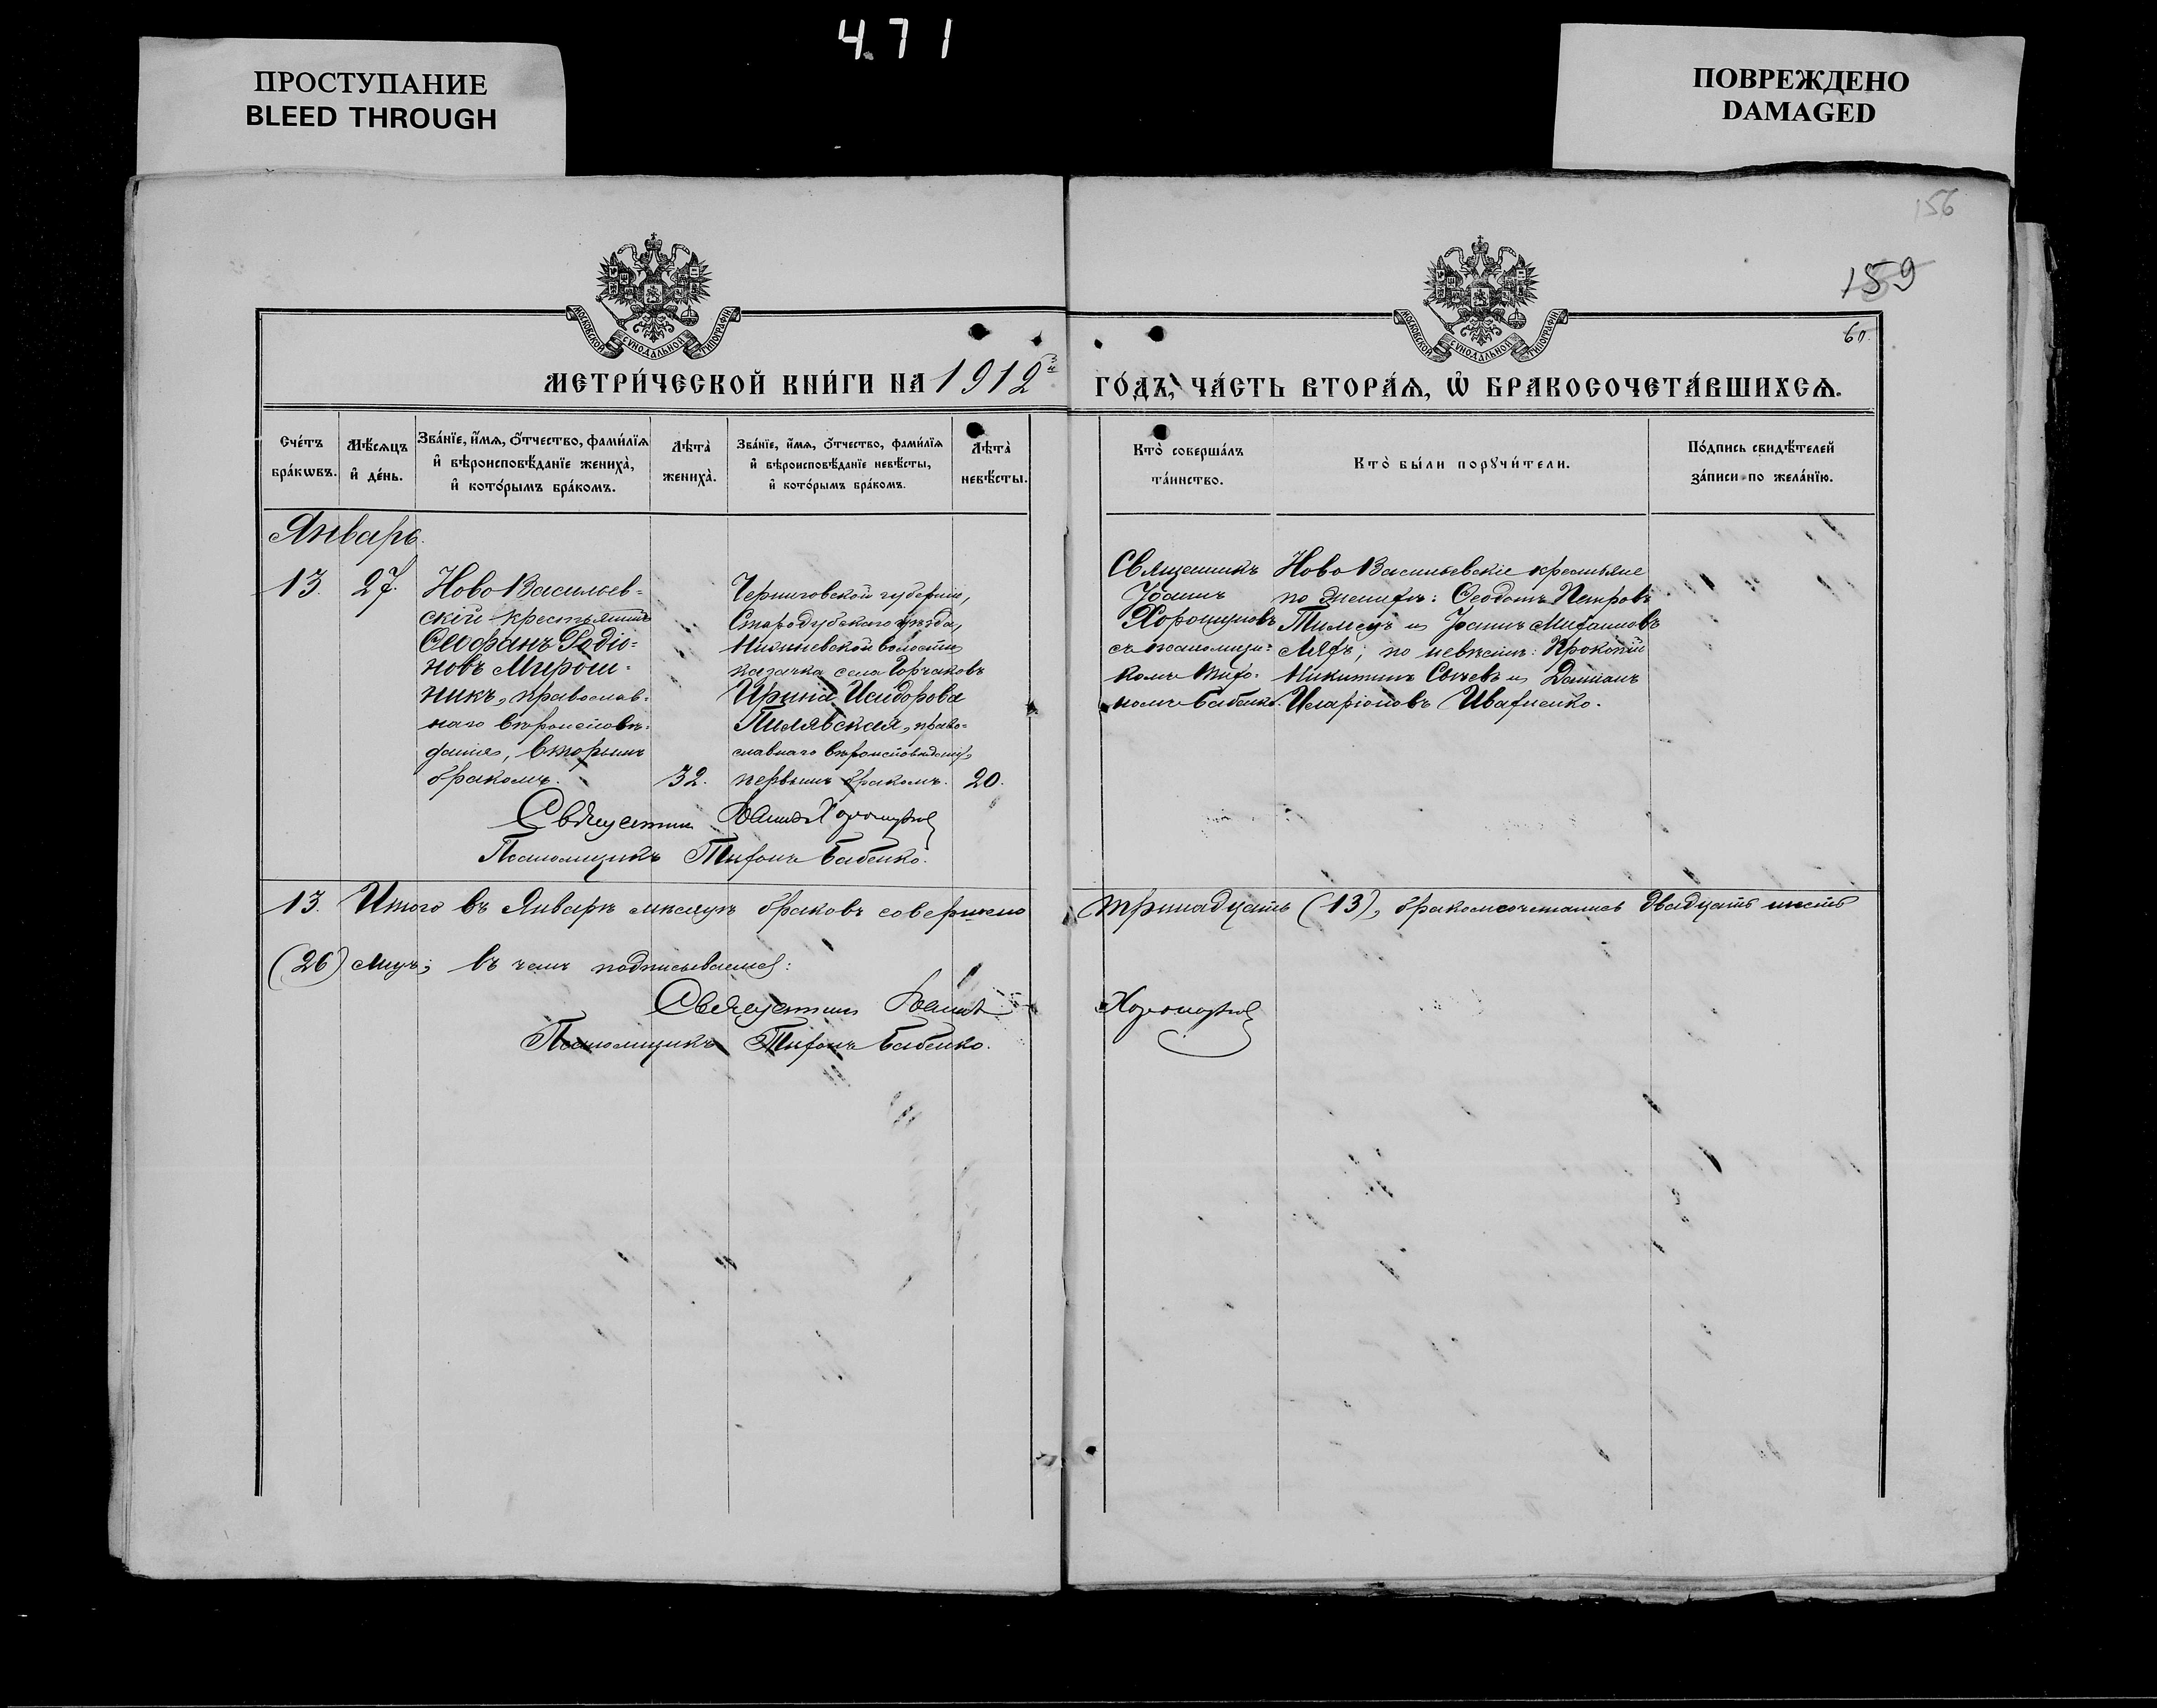 471
ПРОСТУПАНИЕ
BLEED THROUGH
ПОВРЕЖДЕНО
DAMAGED
156
159
60.
МОСКОВСКОЙ СѴНОДАЛЬНОЙ ТИПОГРАФІИ
МОСКОВСКОЙ СѴНОДАЛЬНОЙ ТИПОГРАФІИ
МЕТРИ́ЧЕСКОЙ КНИ́ГИ НА 1912й ГО́ДЪ, ЧА́СТЬ ВТОРА́Ѧ, Ѡ҆ БРАКОСОЧЕТА́ВШИХСѦ.
Сче́тъ бра́кѡвъ.
Мѣ́сѧцъ и҆ де́нь.
Зва́нїе, и҆́мѧ, ѻ҆́тчество, фами́лїѧ и҆ вѣроисповѣ́данїе жениха̀, и҆ кото́рымъ бра́комъ.
Лѣта̀ жениха̀.
Зва́нїе, и҆́мѧ, ѻ҆́тчество, фами́лїѧ и҆ вѣроисповѣ́данїе невѣ́сты, и҆ кото́рымъ бра́комъ.
Лѣта̀ невѣ́сты.
Кто̀ соверша́лъ та́инство.
Кто̀ бы́ли порꙋчи́тели.
По́дпись свидѣ́телей за́писи по жела́нїю.
Январь.
13.
27.
Ново Васильев-
скій крестьянинъ
Ѳеофанъ Родіо-
новъ Мирош-
никъ, православ-
наго вѣроисповѣ-
данія, вторымъ
бракомъ.
32.
Черниговской губерніи,
Стародубскаго уѣзда,
волости
казачка села
Ирина Исидорова
Пилявская, право-
славнаго вѣроисповѣданія,
первымъ бракомъ.
20.
Священникъ
Іоаннъ
Хорошуновъ
съ псаломщи-
комъ Тихо-
номъ Бабенко.
Ново Васильевскіе крестьяне
по женихѣ: Ѳеодотъ Петровъ
и Іоаннъ Михаиловъ
по невѣстѣ: Прокопій
Никитинъ и Даміанъ
Иларіоновъ Ивахненко.
Священникъ Іоаннъ Хорошуновъ
Псаломщикъ Тихонъ Бабенко.
13. Итого въ Январѣ мѣсяцѣ браковъ совершено тринадцать (13), бракомъ сочетались двадцать шесть
(26) лицъ; въ чемъ подписываемся:
Священникъ Іоаннъ Хорошуновъ
Псаломщикъ Тихонъ Бабенко.